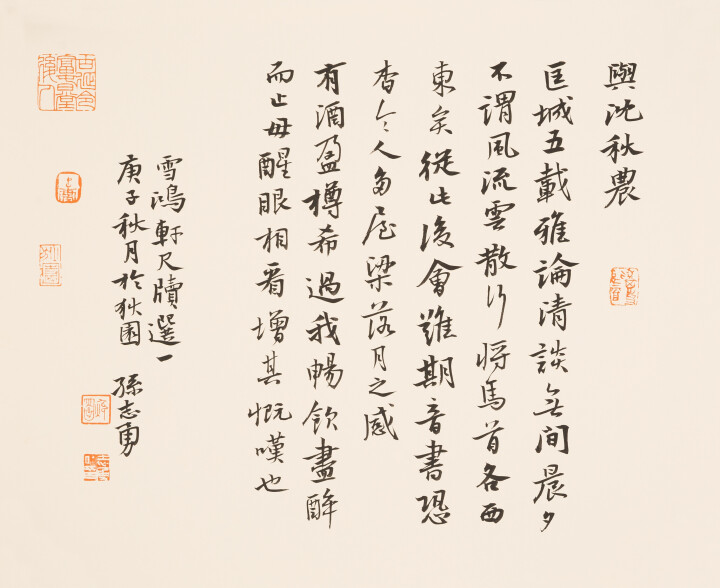 與沈秋農
匡城五載雅論清談無间晨夕
不謂風流雲散行将馬首各西
東矣從此後會難期音書恐
杳令人多屋梁落月之感
有酒盈樽希過我暢飲盡醉
而止毋醒眼相看增其慨嘆也
雪鴻軒尺牘選一
庚子秋月於狄園 孫志勇